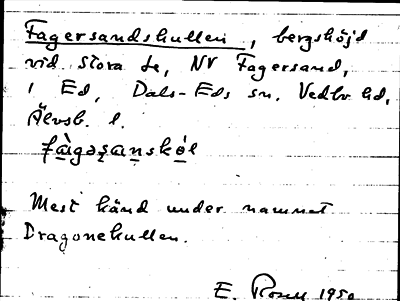 Fagersandskullen, bergshöjd
vid Stora Le, NV Fagersand,
i Ed, Dals-Eds sn, Vedbo hd,
Älvsb. l.
Mest känd under namnet
Dragonekullen.
E. Rosell 1950